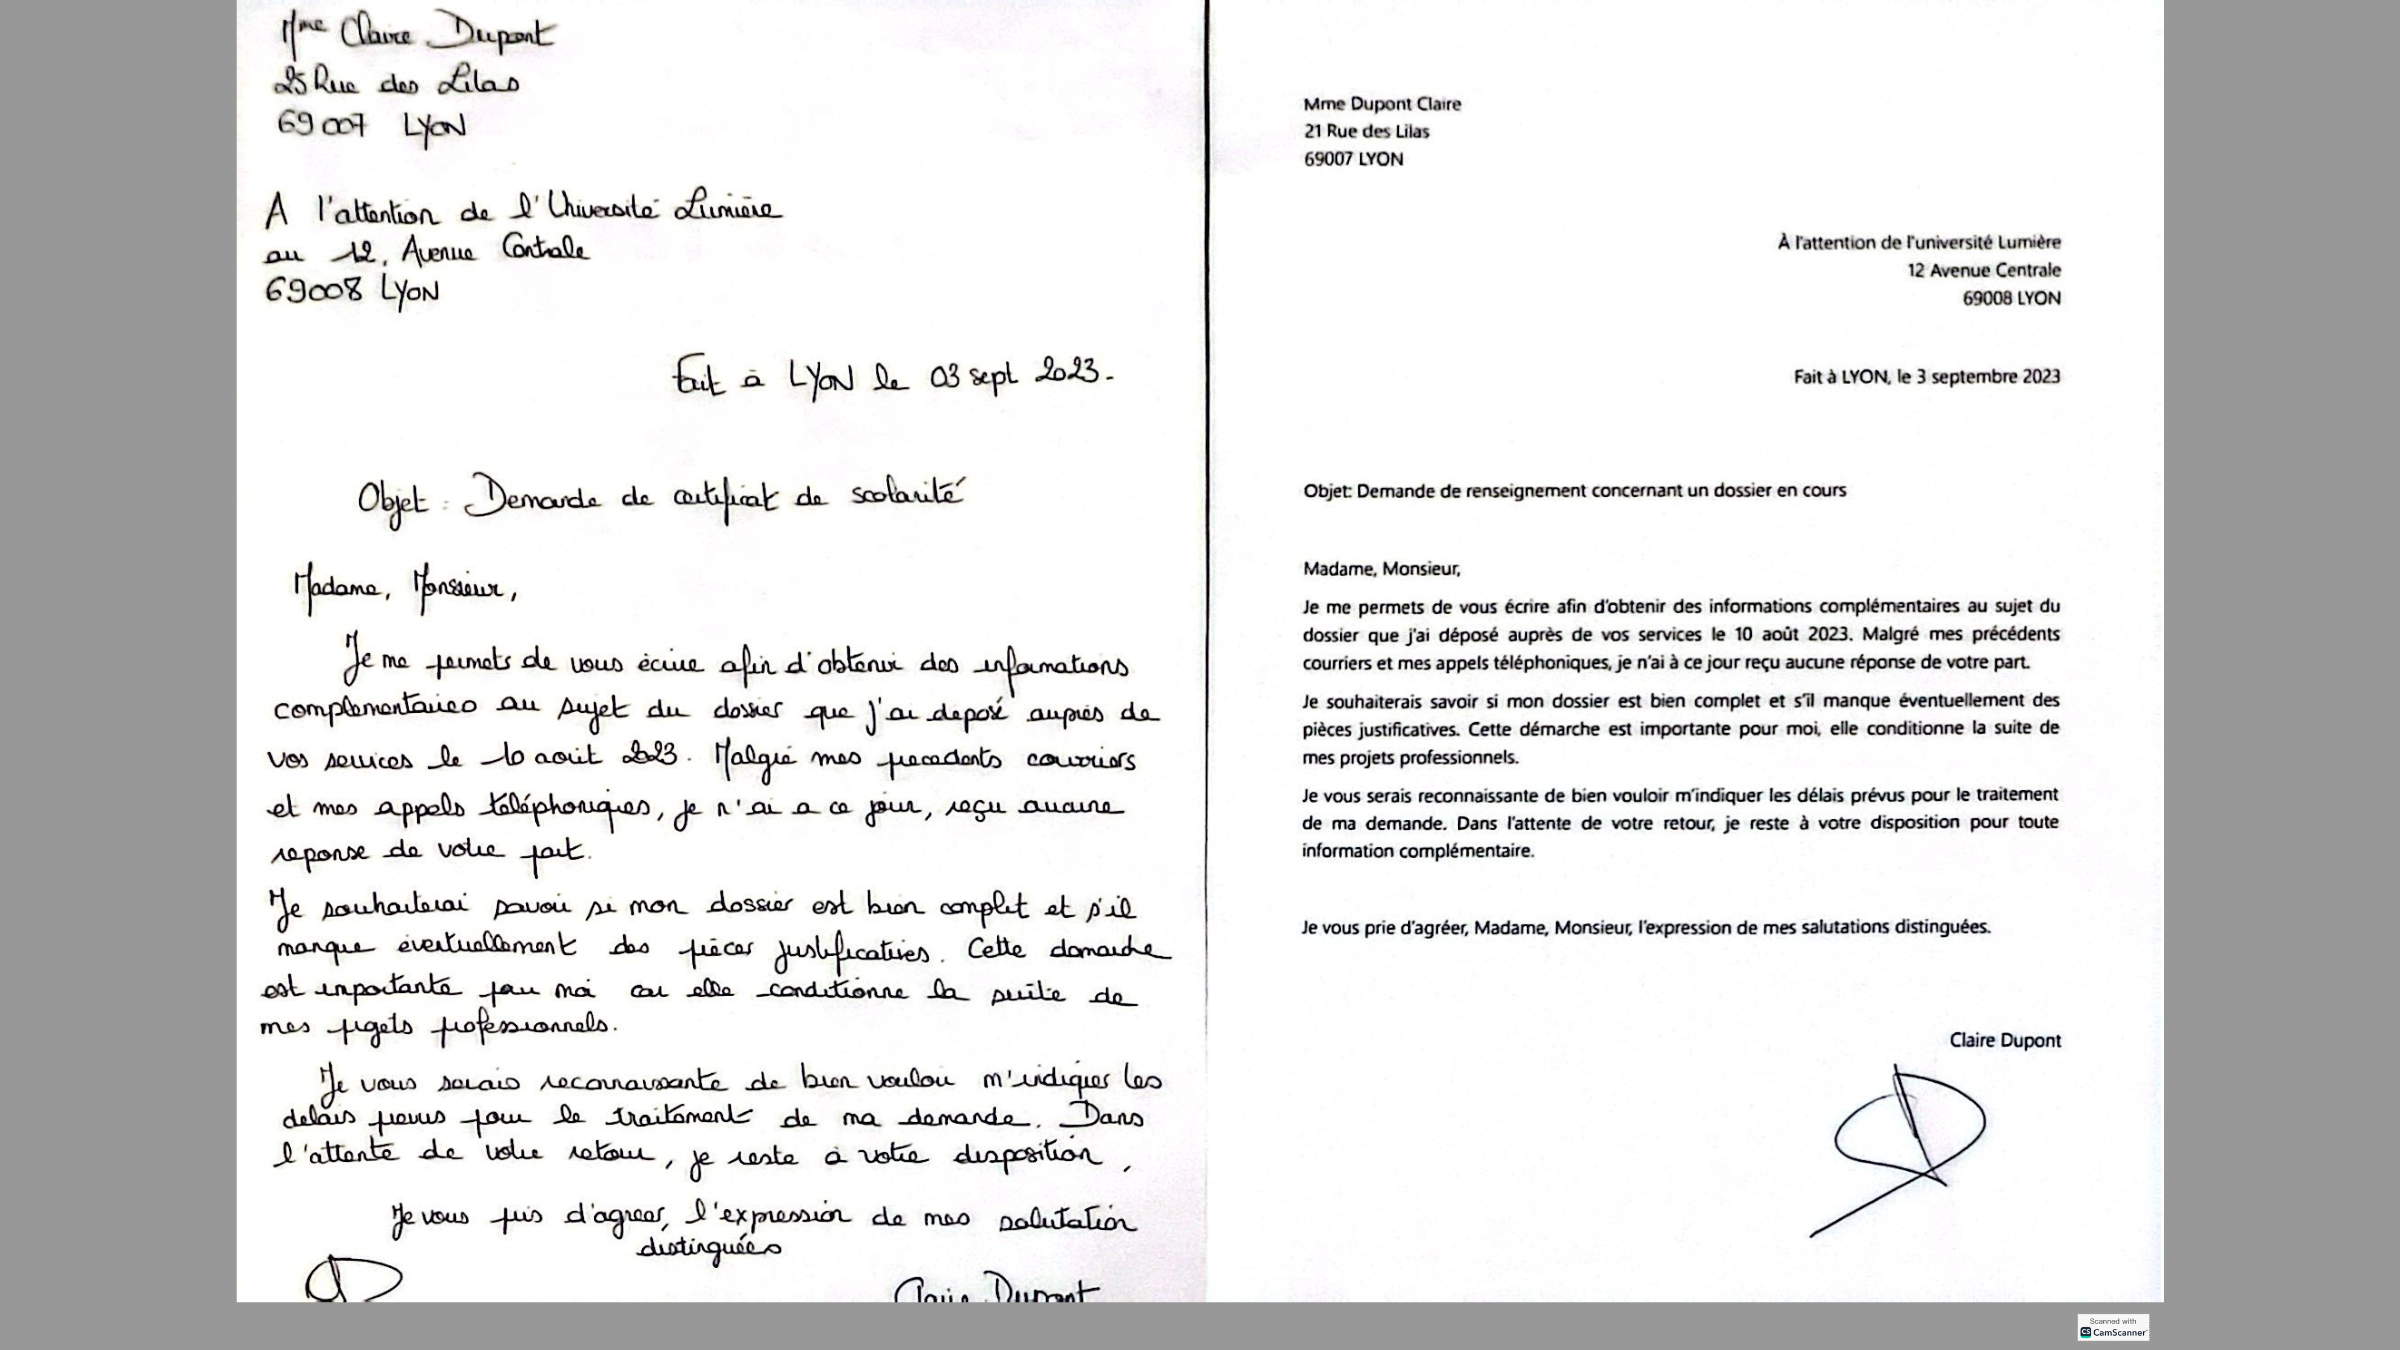 Mme Claire Dupont
25 Rue des Lilas
69007 LYON
A l'attention de l'Université Lumière
au 12, Avenue Centrale
69008 LYON
Fait à LYON le 03 sept 2023.
Objet : Demande de certificat de scolarité
Madame, Monsieur,
Je me permets de vous écrire afin d'obtenir des informations
complementaires au sujet du dossier que j'ai deposé auprès de
vos services le 10 aout 2023. Malgré mes precedents courriers
et mes appels téléphoniques, je n'ai a ce jour, reçu aucune
reponse de votre part.
Je souhaiterai savoir si mon dossier est bien complet et s'il
manque éventuellement des pièces justificatives. Cette demarche
est importante pour moi car elle conditionne la suite de
mes projets professionnels.
Je vous serais reconnaissante de bien vouloir m'indiquer les
delais prevus pour le traitement de ma demande. Dans
l'attente de votre retour, je reste à votre disposition,
Je vous pris d'agreer, l'expression de mes salutation
distinguées
Claire Dupont
Mme Dupont Claire
21 Rue des Lilas
69007 LYON
À l'attention de l'université Lumière
12 Avenue Centrale
69008 LYON
Fait à LYON, le 3 septembre 2023
Objet: Demande de renseignement concernant un dossier en cours
Madame, Monsieur,
Je me permets de vous écrire afin d'obtenir des informations complémentaires au sujet du
dossier que j'ai déposé auprès de vos services le 10 août 2023. Malgré mes précédents
courriers et mes appels téléphoniques, je n'ai à ce jour reçu aucune réponse de votre part.
Je souhaiterais savoir si mon dossier est bien complet et s'il manque éventuellement des
pièces justificatives. Cette démarche est importante pour moi, elle conditionne la suite de
mes projets professionnels.
Je vous serais reconnaissante de bien vouloir m'indiquer les délais prévus pour le traitement
de ma demande. Dans l'attente de votre retour, je reste à votre disposition pour toute
information complémentaire.
Je vous prie d'agréer, Madame, Monsieur, l'expression de mes salutations distinguées.
Claire Dupont
Scanned with
CS CamScanner